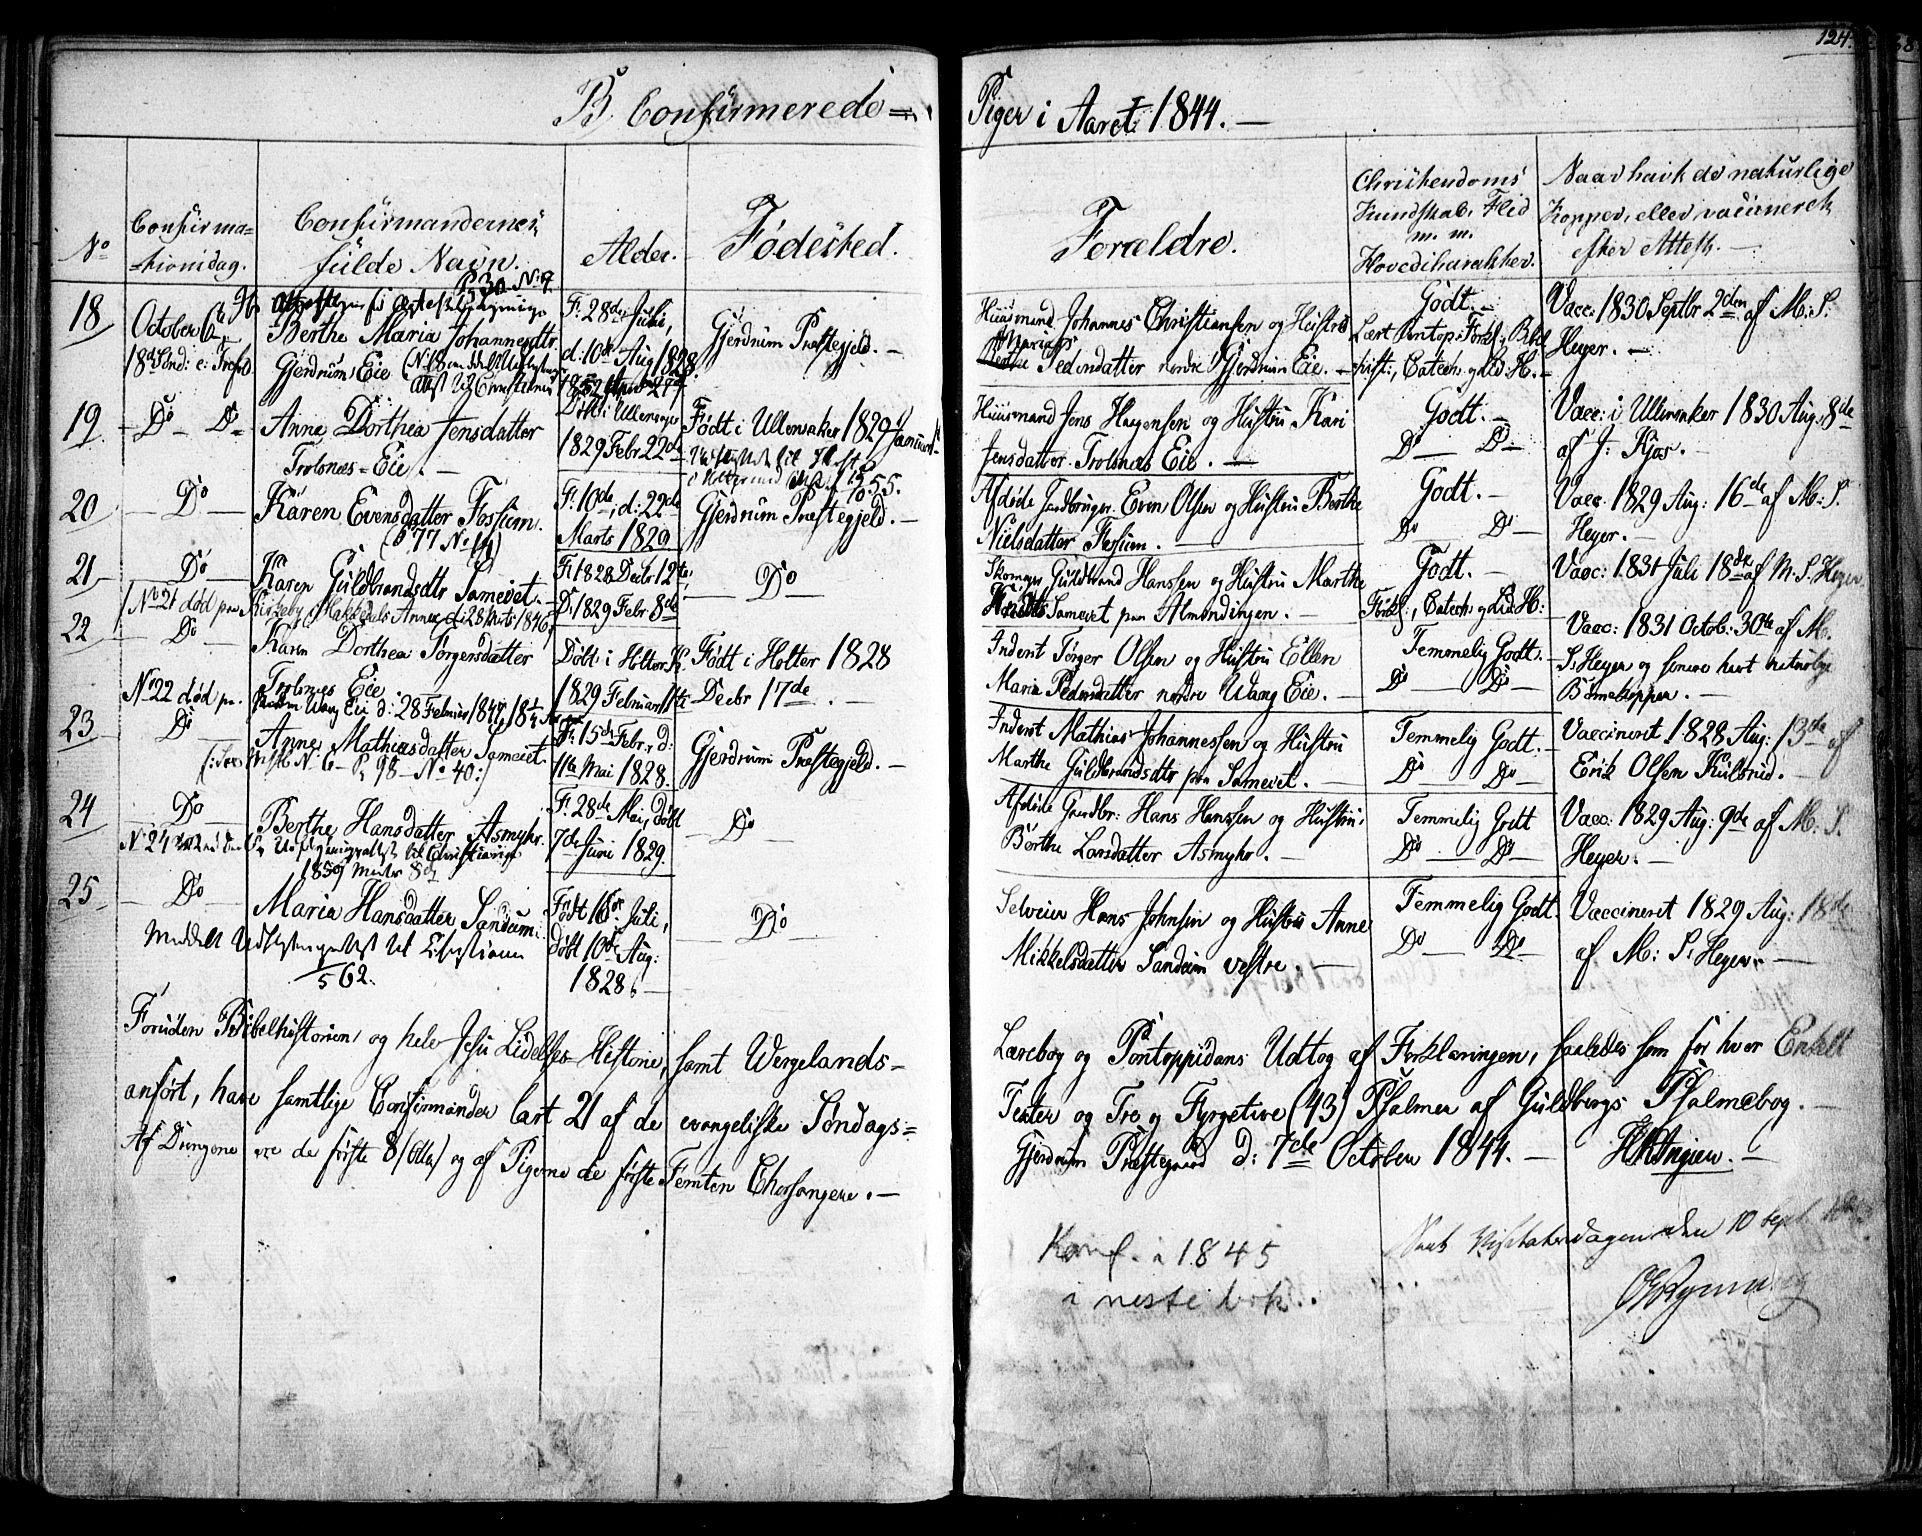 124.
B. Confirmerede =
Piger i Aaret 1844. —
No
Confirma=
=tionsdag.
Confirmandernes
fulde Navn.
Alder.
Fødested.
Forældre.
Christendoms
Kundskab, Flid
m. m.
Hovedcharakter.
Naar havt de naturlige
Kopper, eller vaccineret,
efter Attest. —
18
October 6te
18de Sønd: e: Trefo.
P. 30 No 9.
Berthe Maria Johannesdtr.
Gjerdrum Eie
F. 28de Juli,
d. 10de Aug 1828.
Gjerdrum Præstegjeld. —
Huusmand Johannes Christiansen og Hustrue
Pedersdatter nordre Gjerdrum Eie. —
Godt. —
Lært Pontop: Forkl:, Bibel
hist:, Catech: og Lid: H. —
Vacc: 1830 Septbr 2den af M: S.
Heyer. —
19
— Do — Do —
Anne Dorthea Jensdatter
Trolsnæs = Eie. —
Døbt i Ullensager
1829 Febr. 22de
Født i Ullensaker 1829 Januar
1855.
Huusmand Jens Haagensen og Hustru Kari
Jensdatter Trolsnæs Eie. —
Godt. —
Do — Do —
Vacc: i Ullensaker 1830 Aug. 8de
af J: Kjos. —
20
— Do —
Karen Evensdatter Fossum.
(P 77 No 19)
F. 10de, d: 22de
Marts 1829
Gjerdrum Præstegjeld. —
Afdøde Gaardbruger Even Olsen og Hustru Berthe
Nielsdatter Fossum. —
Godt. —
Do — Do —
Vacc. 1829 Aug: 16de af M: S.
Heyer. —
21
— Do —
Karen Guldbrandsdtr Sameiet. —
F. 1828 Decbr 12te
D. 1829 Febr. 8de
— Do —
Skomager Guldbrand Hanssen og Hustru Marthe
Sameiet paa Almendingen. —
Godt. —
Forkl:, Catech: og Lid: H: —
Vacc: 1831 Juli 18de af M. S. Heyer
No 21 død paa Kirkeby i Hakkedals Annex d: 28 Marts 1846.
22
— Do —
Karen Dorthea Torgersdatter
Trolsnæs Eie
Døbt i Holter K.
1829 Februar 1ste
Født i Holter 1828
Decbr 17de. —
Inderst Torger Olsen og Hustru Ellen
Maria Pedersdatter nordre Wang Eie. —
Temmelig Godt. —
Do — Do —
Vacc: 1831 Octob. 30te af M.
S. Heyer og senere havt naturlige
Børnekopper. —
No 22 død paa Wang Eie d: 28 Februar
23
— Do —
Anne Mathiasdatter Sameiet.
P. 98 — No 40:)
F. 15de Febr., d:
11te Mai 1828.
Gjerdrum Præstegjeld. —
Inderst Mathias Johannessen og Hustru
Marthe Guldbrandsdtr paa Sameiet. —
Temmelig Godt. —
Do — Do —
Vaccineret 1828 Aug: 13de af
Erik Olsen Kulsrud. —
24
— Do —
Berthe Hansdatter Asmyhr.
F. 28de Mai, døbt
7de Juni 1829.
— Do —
Afdøde Gaardbr: Hans Hanssen og Hustru
Berthe Larsdatter Asmyhr. —
Temmelig Godt
Do — Do —
Vacc: 1829 Aug: 9de af M: S.
Heyer. —
No 24
1859
25
— Do —
Maria Hansdatter Sandum.
Født 16de Juli,
døbt 10de Aug:
1828. —
— Do —
Selveier Hans Johnsen og Hustru Anne
Mikkelsdatter Sandum vestre —
Temmelig Godt.
Do — Do —
Vaccineret 1829 Aug: 18de
af M: S. Heyer. —
Meddelt Udflytningsattest til Christiania
1/5 62.
Foruden Bibelhistorien og hele Jesu Lidelses Historie, samt Wergelands=
Lærebog og Pontoppidans Udtog af Forklaringen, saaledes som for hver Enkelt
anført, have samtlige Confirmander lært 21 af de evangeliske Søndags=
Texter og Tre og Fyrgetive (43) Psalmer af Guldbergs Psalmebog. —
Af Drengene ere de første 8 (Otte) og af Pigerne de første Femten Chorsangere. —
Gjerdrum Præstegaard d: 7de October 1844. —
Konf. i 1845
i neste bok.
Visitatsdagen den 10 Sept.